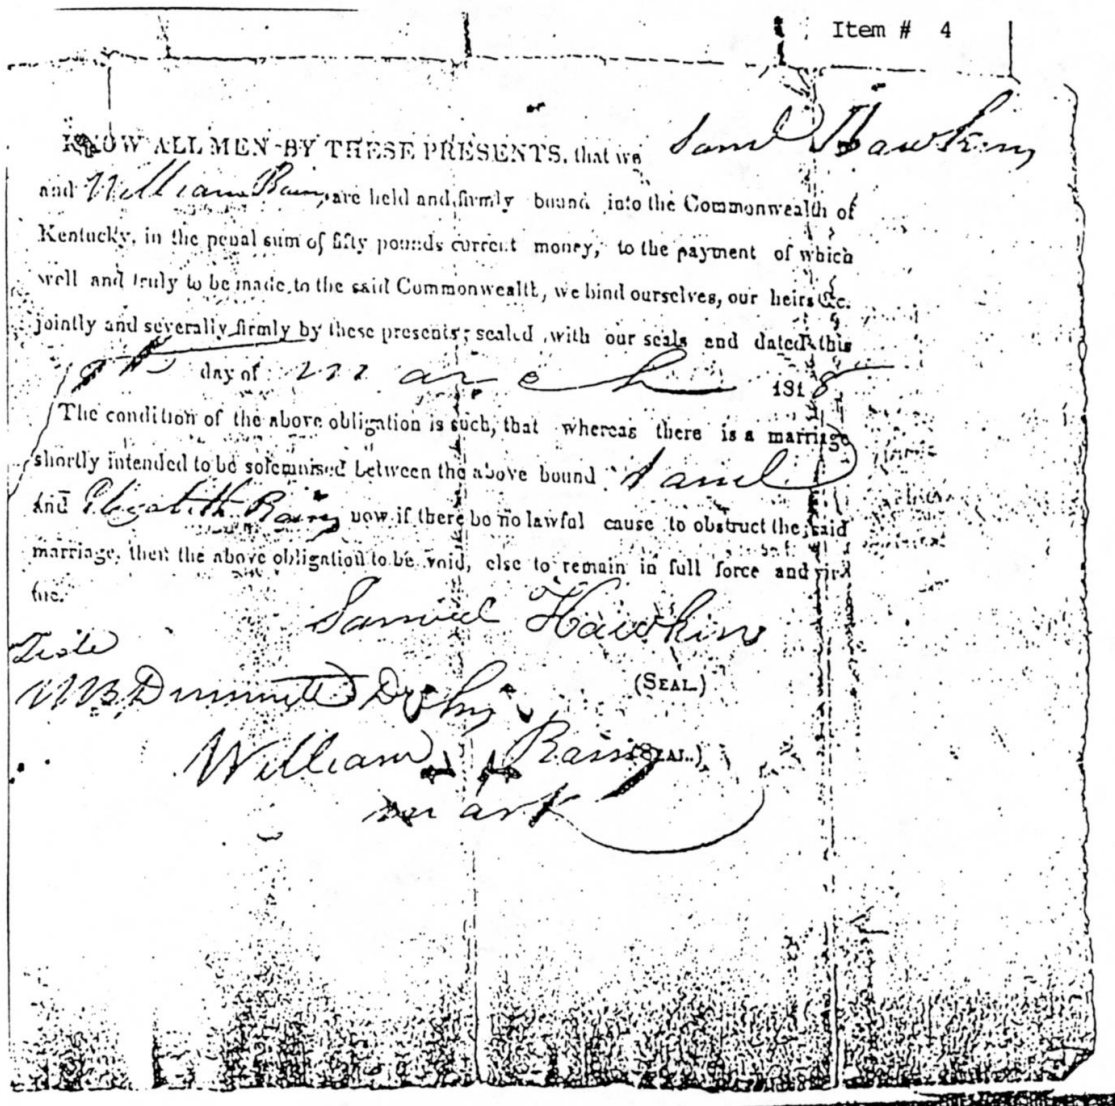 Item # 4
KNOW ALL MEN BY THESE PRESENTS, that we Saml Hawkins
and William Rains are held and firmly bound into the Commonwealth of
Kentucky, in the penal sum of fifty pounds current money, to the payment of which
well and truly to be made, to the said Commonwealth, we bind ourselves, our heirs &c.
jointly and severally firmly by these presents; sealed with our seals and dated this
day of March 1818
The condition of the above obligation is such, that whereas there is a marriage
shortly intended to be solemnised between the above bound Saml
and Elizabeth Rains now if there be no lawful cause to obstruct the said
marriage, then the above obligation to be void, else to remain in full force and vir-
tue.
Samuel Hawkins
Teste
(SEAL.)
William Rains (SEAL.)
mark